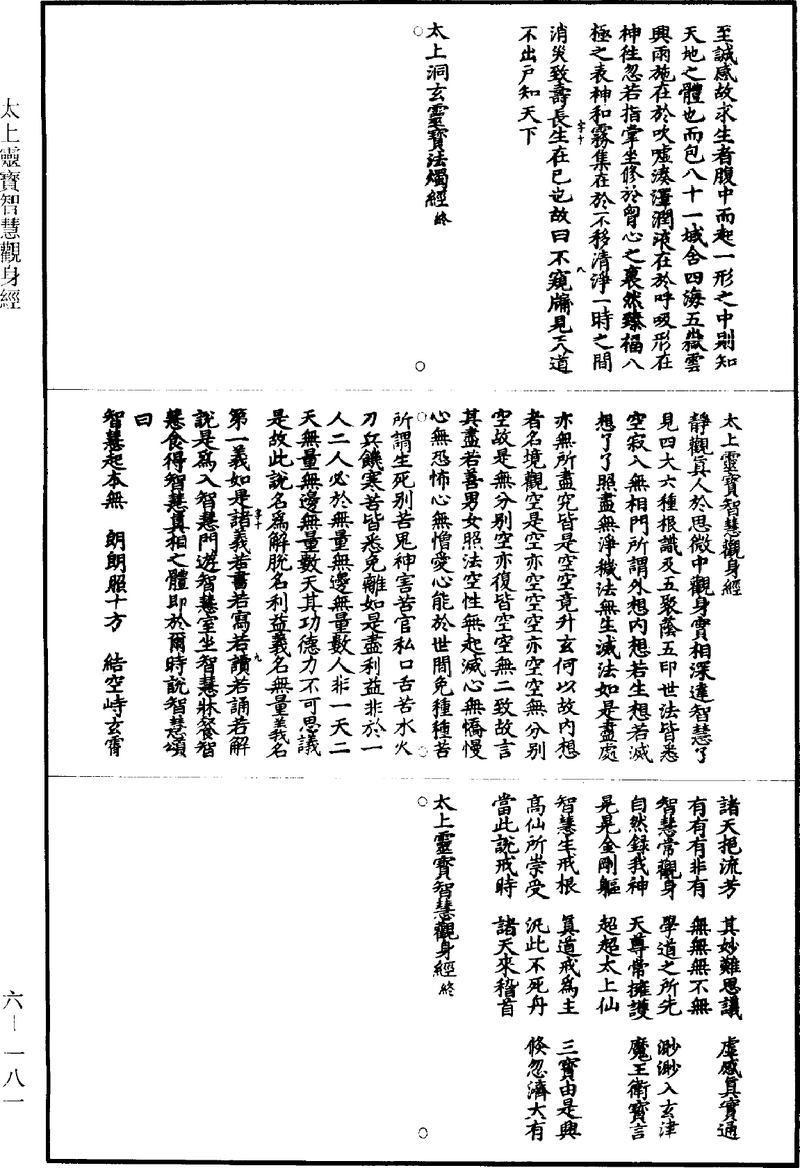 至誠感故求生者腹中而起一形之中則知
天地之體也而包八十一域含四海五嶽雲
興雨施在於吹噓湊澤潤液在於呼吸形在
神往忽若指掌坐修於胷心之裏然臻福八
極之表神和霧集在於不移清淨一時之間
消災致壽長生在已也故曰不窺牖見天道
不出戶知天下
太上洞玄靈寶法燭經終
太上靈寶智慧觀身經
靜觀眞人於思微中觀身實相深達智慧了
見四大六種根識及五聚蔭五印世法皆悉
空寂入無相門所謂外想內想若生想若滅
想了了照盡無淨穢法無生滅法如是盡處
亦無所盡究皆是空空竟升玄何以故內想
者名境觀空是空亦空空空亦空空無分別
空故是無分別空亦復皆空空無二致故言
其盡若善男女照法空性無起滅心無憍慢
心無恐怖心無憎愛心能於世間免種種苦
所謂生死別苦鬼神害苦官私口舌苦水火
刀兵饑寒苦皆悉免離如是盡利益非於一
人二人必於無量無邊無量數人非一天二
天無量無邊無量數天其功德力不可思議
是故此說名爲解脫名利益義名無量義名
第一義如是諸義若書若寫若讀若誦若解
說是爲入智慧門遊智慧室坐智慧牀餐智
慧食得智慧眞相之體即於爾時說智慧頌
曰
智慧起本無　朗朗照十方　結空峙玄霄
諸天挹流芳　其妙難思議　虛感眞實通
有有有非有　無無無不無
智慧常觀身　學道之所先　渺渺入玄津
自然錄我神　天尊常擁護　魔王衛寶言
晃晃金剛軀　超超太上仙
智慧生戒根　眞道戒爲主　三寶由是興
高仙所崇受　汎此不死舟　倏忽濟大有
當此說戒時　諸天來稽首
太上靈寶智慧觀身經終
字十
八
字十
九
太上靈寶智慧觀身經
六－一八一